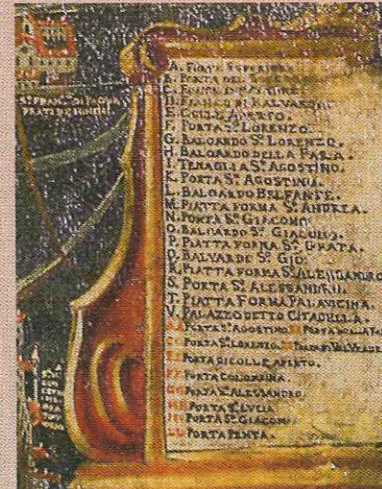 A. FORTE SUPERIORE
B. PORTA DEL SOCCORSO
D. FIANCO DI BALVARDI
E. COLLE APERTO.
F. PORTA Sº LORENZO.
G. BALOARDO Sº LORENZO.
H. BALOARDO DELLA FARA.
I. TENAGLIA Sº AGOSTINO.
K. PORTA Sº AGOSTINIA.
L. BALOARDO BELFANTE.
M. PIATTA FORMA Sº ANDREA.
N. PORTA Sº GIACOMO
O. BALOARDO Sº GIACOMO.
P. PIATTA FORMA Sº GRATA.
Q. BALVARDE Sº GIO.
R. PIATTA FORMA Sº ALESSANDRO
S. PORTA Sº ALESSANDRII.
T. PIATTA FORMA PALAVICINA.
V. PALAZZO DETTO CITADELLA.
AA PORTA Sº AGOSTINO
CC PORTA Sº LORENZO.
EE PORTA DI COLLE APERTO.
FF PORTA COLOMBINA.
GG PORTA Sº ALESSANDRO.
HH PORTA Sª LUCIA
II PORTA Sº GIACOMO
LL PORTA PENTA.